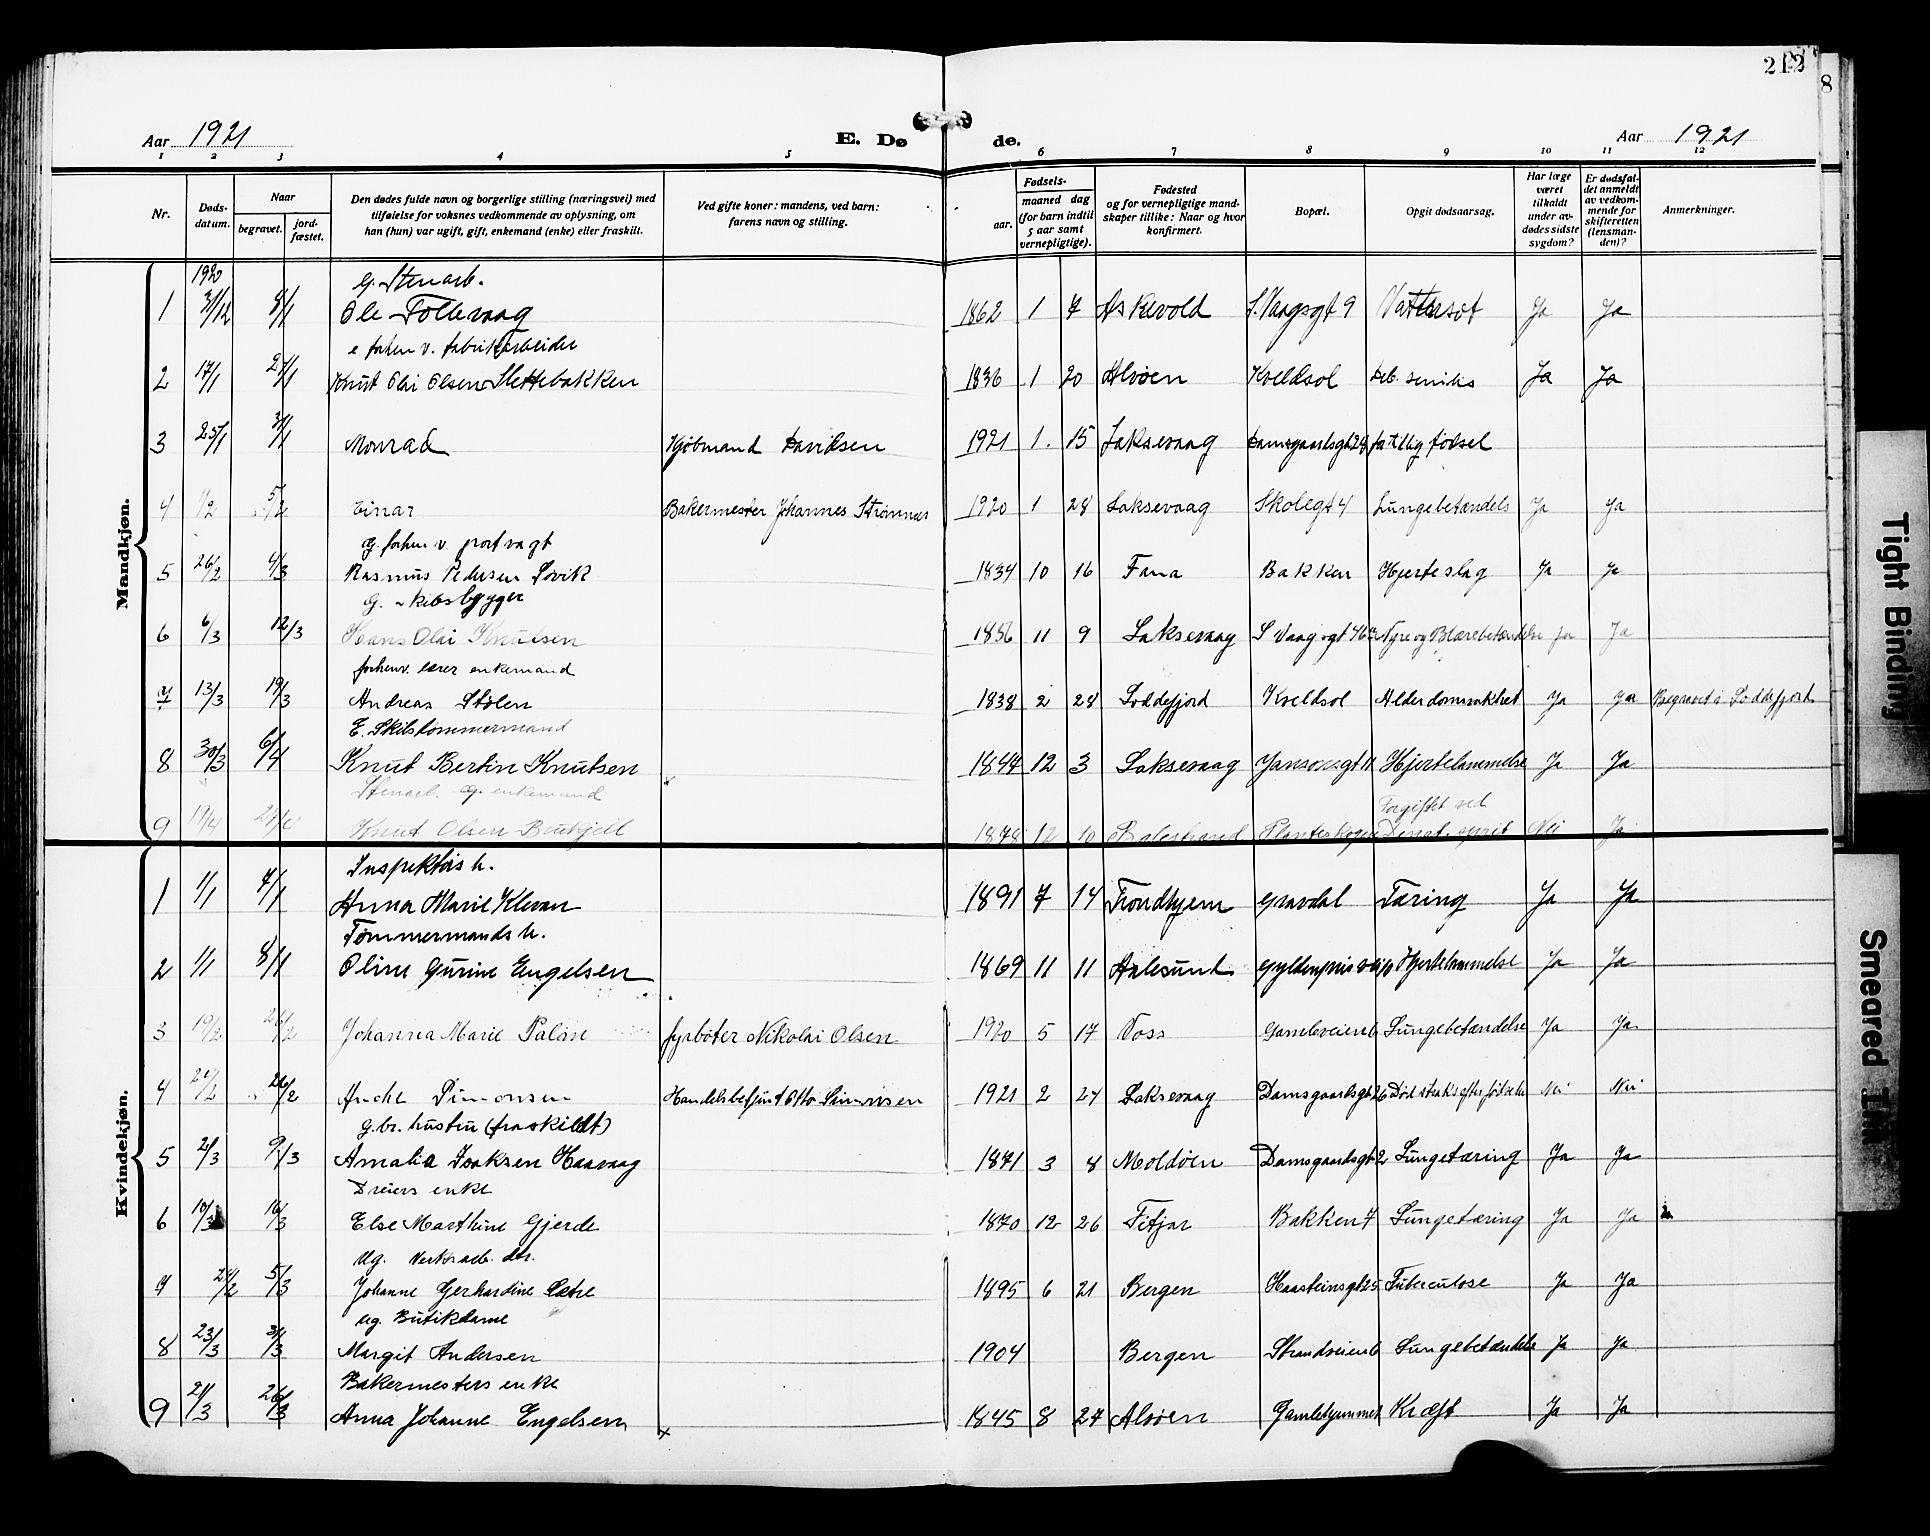 212
8
Aar 1921 E. Dø de. Aar 1921
1 2 3 4 5 6 7 8 9 10 11 12
Nr. Døds-datum. Naar begravet. jord-fæstet. Den dødes fulde navn og borgerlige stilling (næringsvei) med tilføielse for voksnes vedkommende av oplysning, om han (hun) var ugift, gift, enkemand (enke) eller fraskilt. Ved gifte koner: mandens, ved barn: farens navn og stilling. Fødsels- aar. maaned dag (for barn indtil 5 aar samt vernepligtige). Fødested og for vernepligtige mandskaper tillike: Naar og hvor konfirmert. Bopæl. Opgit dødsaarsag. Har læge været tilkaldt under avdødes sidste sygdom? Er dødsfaldet anmeldt av vedkommende for skifteretten (lensmanden)? Anmerkninger.
Mandkjøn.
1920 g. Stenarb.
1 31/12 8/1 Ole Tollevaag 1862 1 7 Askevold S. Vaagsgt 9 Vattersot Ja Ja
e forhen v. fabrikarbeider
2 17/1 21/1 Knut Olai Olsen Slettebakken 1836 1 20 Alvøen Kveldsol Deb. senilis Ja Ja
3 25/1 31/1 Monrad Kjøbmand Davidsen 1921 1. 15 Laksevaag Damsgaardsgt 28 fortidlig fødsel
4 1/2 5/2 Einar Bakermester Johannes Strømnes 1920 1 28 Laksevaag Skolegt 4 Lungebetændels Ja Ja
g. forhen v. portvagt
5 26/2 4/3 Rasmus Pedersen Søvik 1834 10 16 Fana Bakken Hjerteslag Ja Ja
G. skibsbygger
6 6/3 12/3 Hans Olai Knutsen 1856 11 9 Laksevaag S Vaagsgt 46 Nyre og Blærebetændelse Ja Ja
forhenv. lærer enkemand
7 13/3 19/3 Andreas Stølen 1838 2 28 Loddefjord Kveldsol Alderdomsvakhet Ja Ja Begravet i Loddefjord
E. Skibstømmermand
8 30/3 6/4 Knut Bertin Knutsen 1844 12 3 Laksevaag Jansonsgt 11 Hjertelammelse Ja Ja
Stenarb. g. enkemand Forgiftet ved
9 19/4 27/4 Knut Olsen 1878 12 10 Balestrand Planteskogen Denat. sprit Nei Ja
Kvindekjøn.
Inspektørs h.
1 1/1 7/1 Anna Marie Klevan 1891 7 14 Trondhjem Gravdal Tæring Ja Ja
Tømmermands h.
2 1/1 8/1 Oline Gurine Engelsen 1869 11 11 Aalesund Gyldenprisvei 10 Hjertelammelse Ja Ja
3 19/2 26/2 Johanna Marie Paline fyrbøter Nikolai Olsen 1920 5 17 Voss Gamleveien 6 Lungebetændelse Ja Ja
4 24/2 26/2 Simonsen Handelsbetjent Otto Simonsen 1921 2 24 Laksevaag Damsgaardsgt 26 Død straks efter fødselen Nei Nei
g. br. hustru (fraskildt)
5 2/3 9/3 Amalia Isaksen Haavaag 1871 3 8 Moldøen Damsgaardsgt 2 Lungetæring Ja Ja
Dreiers enke
6 10/3 16/3 Else Marthine Gjerde 1870 12 26 Fitjar Bakken 7 Lungetæring Ja Ja
Ug. Verksarb. dtr.
7 24/2 5/3 Johanne Gerhardine Sætre 1895 6 21 Bergen Haasteinsgt 25 Tuberculose Ja Ja
ug. Butikdame
8 23/3 31/3 Margit Andersen 1904 Bergen Strandveien 6 Lungebetændelse Ja Ja
Bakermesters enke
9 21/3 26/3 Anna Johanne Engelsen 1845 8 27 Alvøen Gamlehjemmet Kræft Ja Ja
Tight Binding
Smeared Ink